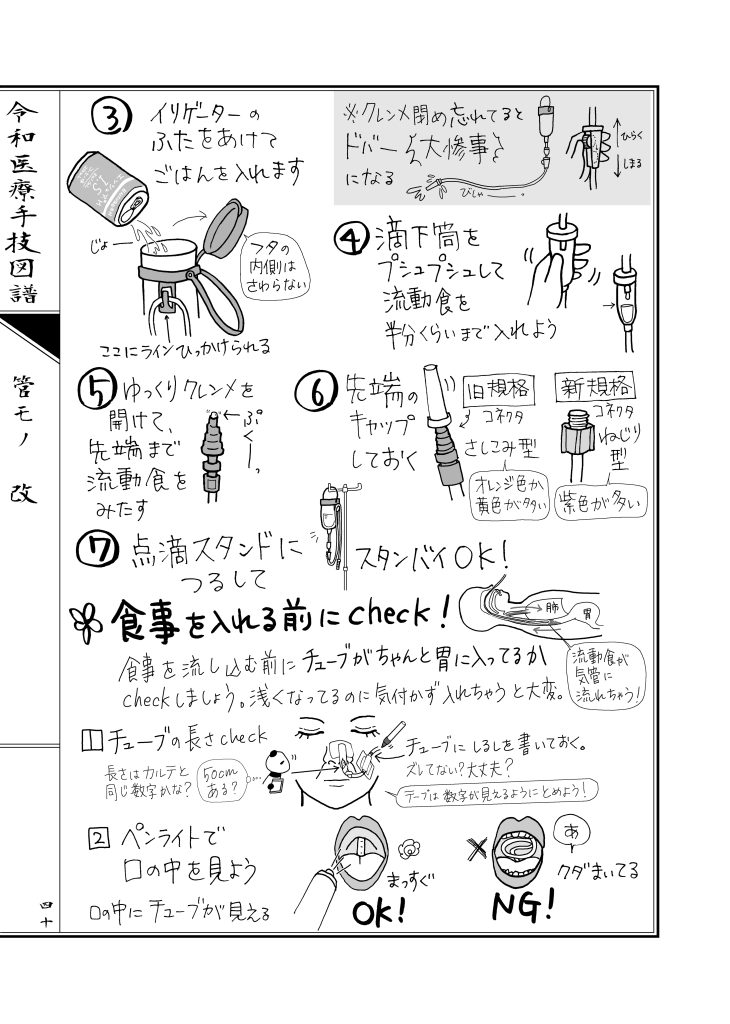 令和医療手技図譜
管モノ 改
四十
③ イリゲーターの
ふたをあけて
ごはんを入れます
じょー
フタの
内側は
さわらない
ここにラインひっかけられる
※クレンメ閉め忘れてると
ドバー 大惨事
になる
びしゃー
ひらく
しまる
④ 滴下筒を
プシュプシュして
流動食を
半分くらいまで入れよう
⑤ ゆっくりクレンメを
開けて、
先端まで
流動食を
みたす
ぷくーっ
⑥ 先端の
キャップ
しておく
旧規格
コネクタ
さしこみ型
オレンジ色か
黄色が多い
新規格
コネクタ
ねじり
型
紫色が多い
⑦ 点滴スタンドに
つるして
スタンバイOK!
食事を入れる前にcheck!
肺
胃
流動食が
気管に
流れちゃう!
食事を流し込む前にチューブがちゃんと胃に入ってるか
checkしましょう。浅くなってるのに気付かず入れちゃうと大変。
1 チューブの長さcheck
長さはカルテと
同じ数字かな?
50cm
ある?
チューブにしるしを書いておく。
ズレてない?大丈夫?
テープは数字が見えるようにとめよう!
2 ペンライトで
口の中を見よう
口の中にチューブが見える
まっすぐ
OK!
あ
クダまいてる
NG!